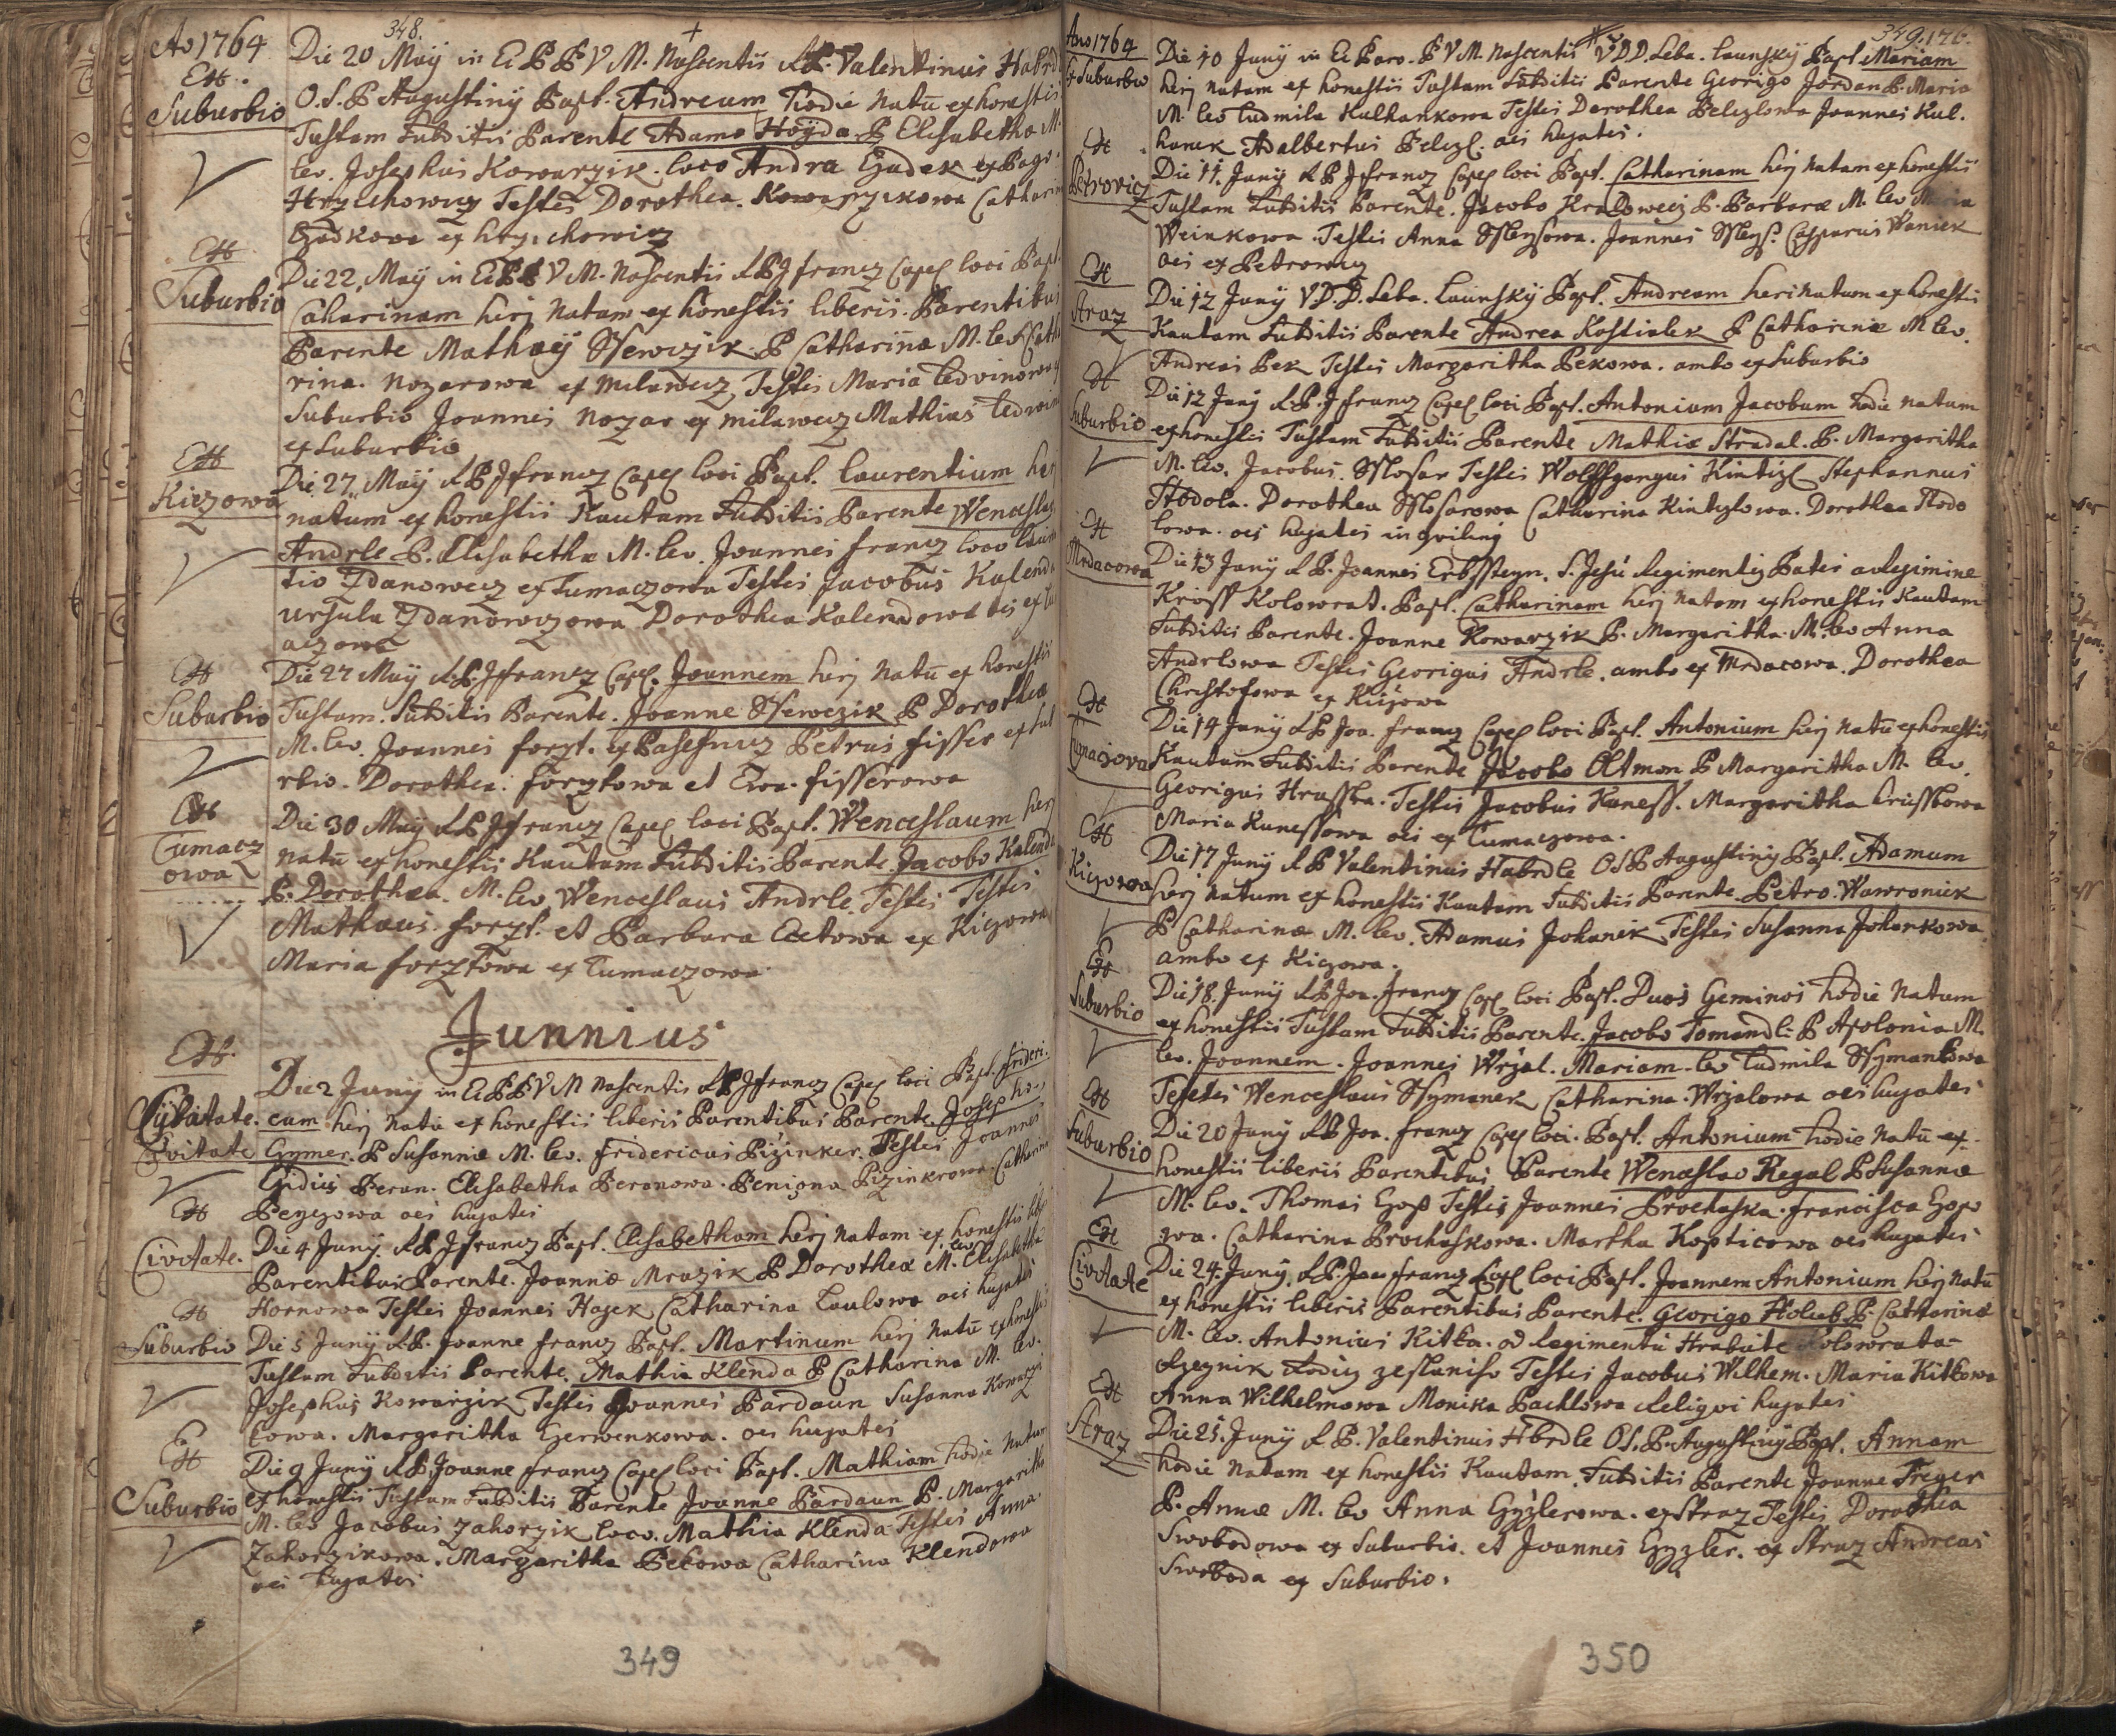 348.
Ao 1764
Ex
Suburbio
Die 20 Maÿ in Ec P B V M. Nascentis R P. Valentinus Habrd
O. S. P. Augustinÿ Bapt. Andream hodie natū ex honestis
Tustam Subditis Parente Adamo Hoÿda P Elisabetha M.
lev. Josephus Kowarzik. loco Andra Czadek ex Pago
Hrzichowicz Testes Dorothea Kowarzikowa Catharin
Czadkowa ex hrzichowicz
Suburbio
Die 22. Maÿ in Ec P B V M. Nascentis R P J francz Capel loci Bapt.
Caharinam herj natam ex honestis liberis Parentibus
Parente Mathaeÿ Ssewczik P Catharina M. lev Cath
rina Nozarowa ex milawecz, Testes Maria Ledvinowa
Suburbio Joannes Nozar ex milawecz Mathias Ledwin
ex Suburbio
Kiczowa
Die 27 Maÿ R P J francz Capel loci Bapt. Laurentium her
natum ex honestis Kautam Subditis Parente Wenceslao
Andrle P. Elisabetha M. lev. Joannes francz loco Lauren
tio Zdanowecz ex Tumaczowa Testes Jacobus Kalenda
Ursula Zdanowczowa Dorothea Kalendowa oes ex Tu
aczowa
Suburbio
Die 27 Maÿ R. P. J francz Capel. Joannem herj natū ex honestis
Tustam. Subditis Parente. Joanne Ssewczik P Dorothea
M. lev. Joannes forzt. ex Pasesnicz Petrus fisser ex Sub
rbio. Dorothea forztowa et Ewa fisserowa
Tumacz
owa
Die 30 Maÿ R P J francz Capel loci Bapt. Wenceslaum herj
natū ex honestis Kautam Subditis Parente Jacobo Kalenda
P. Dorothea. M. lev Wenceslaus Andrle. Testes Testes
Mathaeus forzt. et Barbara Eretowa ex Kiczowa
Maria forztowa ex Tumaczowa
Junnius
Civitate
Die 2 Junÿ in Ec P B V M Nascentis R P J francz Capel loci Bapt. frideri
cum herj natū ex honestis liberis Parentibus Parente. Josepho
Gymer. P Susanna M. lev. fridericus Pizinker. Testes Joannes
Egidius Beran. Elisabetha Beranowa. Pizinkrowa. Catharina
oes hujates
Civitate.
Die 4 Junÿ. R P J francz Bapt. Elisabetham herj natam ex honestis lib
Parentibus Parente. Joanne Mrazik P Dorothea M. lev Elisabetha
Hornowa Testes Joannes Hajek Catharina Laulowa oes hujates
Suburbio
Die 5 Junÿ R. P. Joanne francz Bapt. Martinum herj natū ex hones
Tustam Subditis Parente. Mathia Klenda P Catharina M. lev.
Josephus Kowarzik Testes Joannes Pardaun Susanna Kowarzi
kowa. Margaritha Czerwenkowa. oes hujates
Suburbio
Die 9 Junÿ R P Joanne francz Capel loci Bapt. Mathiam hodie natum
ex honestis Tustam Subditis Parente Joanne Pardaun P. Margaritha
M. lev Jacobus Zahorzik loco. Mathia Klenda Testes Anna.
Zahorzikowa. Margaritha Pekowa Catharina Klendowa
oes hujates
349
349. 176.
Ano 1764
Ex Suburbio
Die 10 Junÿ in Ec Paro. B V M. Nascentis V D D. Seba. Launskÿ Bapt. Mariam
herj natam ex honestis Tustam Subditis Parente Georigo Jordan P. Maria
M. lev Ludmila Kulhankowa Testes Dorothea Pelczlowa Joannes Kul.
hanek Adalbertus Pelczl. oes hujates.
Petrovicz
Die 11. Junÿ R P J francz Capel loci Bapt. Catharinam herj natam ex honestis
Tustam Subditis Parente. Jacobo Kralowecz P. Barbara M. lev Maria
Weinkowa. Testes Anna Ssleysowa. Joannes Ssleys. Casparus Waniek
oes ex Petrowicz
Straz
Die 12 Junÿ V. D. D. Seba. Launskÿ Bapt. Andream heri natum ex honestis
Kautam Subditis Parente Andrea Kostialek P Catharina M lev.
Andreas Pek Testes Margaritha Pekowa. ambo ex Suburbio
Suburbio
Die 12 Junÿ R P. J francz Capel loci Bapt. Antonium Jacobum hodie natum
ex honestis Tustam Subditis Parente Mathia Stradal. P. Margaritha
M. lev. Jacobus. Sslosar Testes Wolffgangus Kintizl Stephannus
Stodola. Dorothea Sslosarowa Catharina Kintzlowa. Dorothea Stodo
lowa. oes hujates inqvilinÿ
Mrdacowa
Die 13 Junÿ R P. Joannes Erbssteyn. S. Jesu Regimentis Pater a Regimine
Kriss Kolowrat. Bapt. Catharinam herj natam ex honestis Kautam
Subditis Parente. Joanne Kowarzik P. Margaritha M. lev Anna
Andrlowa Testes Georigus Andrle. ambo ex Mrdacowa. Dorothea
Christofowa ex Kiczowa
Tumaczova
Die 14 Junÿ R P Joa. francz Capel loci Bapt. Antonium herj natū ex honestis
Kautam Subditis Parente Jacobo Altman P Margaritha M. lev.
Georigus Hrusska. Testes Jacobus Kuness. Margaritha hrusskowa
Maria Kunessowa oes ex Tumaczowa.
Kiczowa
Die 17 Junÿ R P Valentinus Habrdle O S P Augustinÿ Bapt. Adamum
herj natum ex honestis Kautam Subditis Parente Petro. Wawroniek
P Catharina M. lev. Adamus Johanek Testes Susanna Johankowa
ambo ex Kiczowa.
Suburbio
Die 18. Junÿ R P Joa. francz Capel loci Bapt. Duos Geminos hodie natum
ex honestis Tustam Subditis Parente. Jacobo Tomandl: P Apolonia M.
lev. Joannem. Joannes Wrzal. Mariam. lev Ludmila Ssymankowa
Testes Wenceslaus Ssymanek Catharina. Wrzalowa oes hujates
Suburbio
Die 20 Junÿ R P Joa. francz Capel loci. Bapt. Antonium hodie natū ex
honestis liberis Parentibus Parente Wenceslao Rezal P Susanna
M. lev. Thomas Testes Joannes Prochaska. francisca
Catharina Prochaskowa. Martha Kopticowa oes hujates
Civitate
Die 24. Junÿ. R. P. Joa francz Capel loci Bapt. Joannem Antonium herj natū
ex honestis liberis Parentibus Parente. Georigo Holub P. Catharina
M. lev. Antonius Kitka. od Regimentu Hrabite Kolowrata
Testes Jacobus Wilhem. Maria Kitkowa
Anna Wilhelmowa Monika Pachlowa Reliqvi hujates
Straz
Die 25. Junÿ R P. Valentinus Hbrdle O S. P. Augustinÿ Bapt. Annam
hodie natam ex honestis Kautam. Subditis Parente Joanne Treger
P. Anna M. lev Anna Gyzlerowa. ex Straz Testes Dorothea
Swobodowa ex Suburbio. et Joannes Gyzler. ex Straz Andreas
Swoboda ex Suburbio.
350